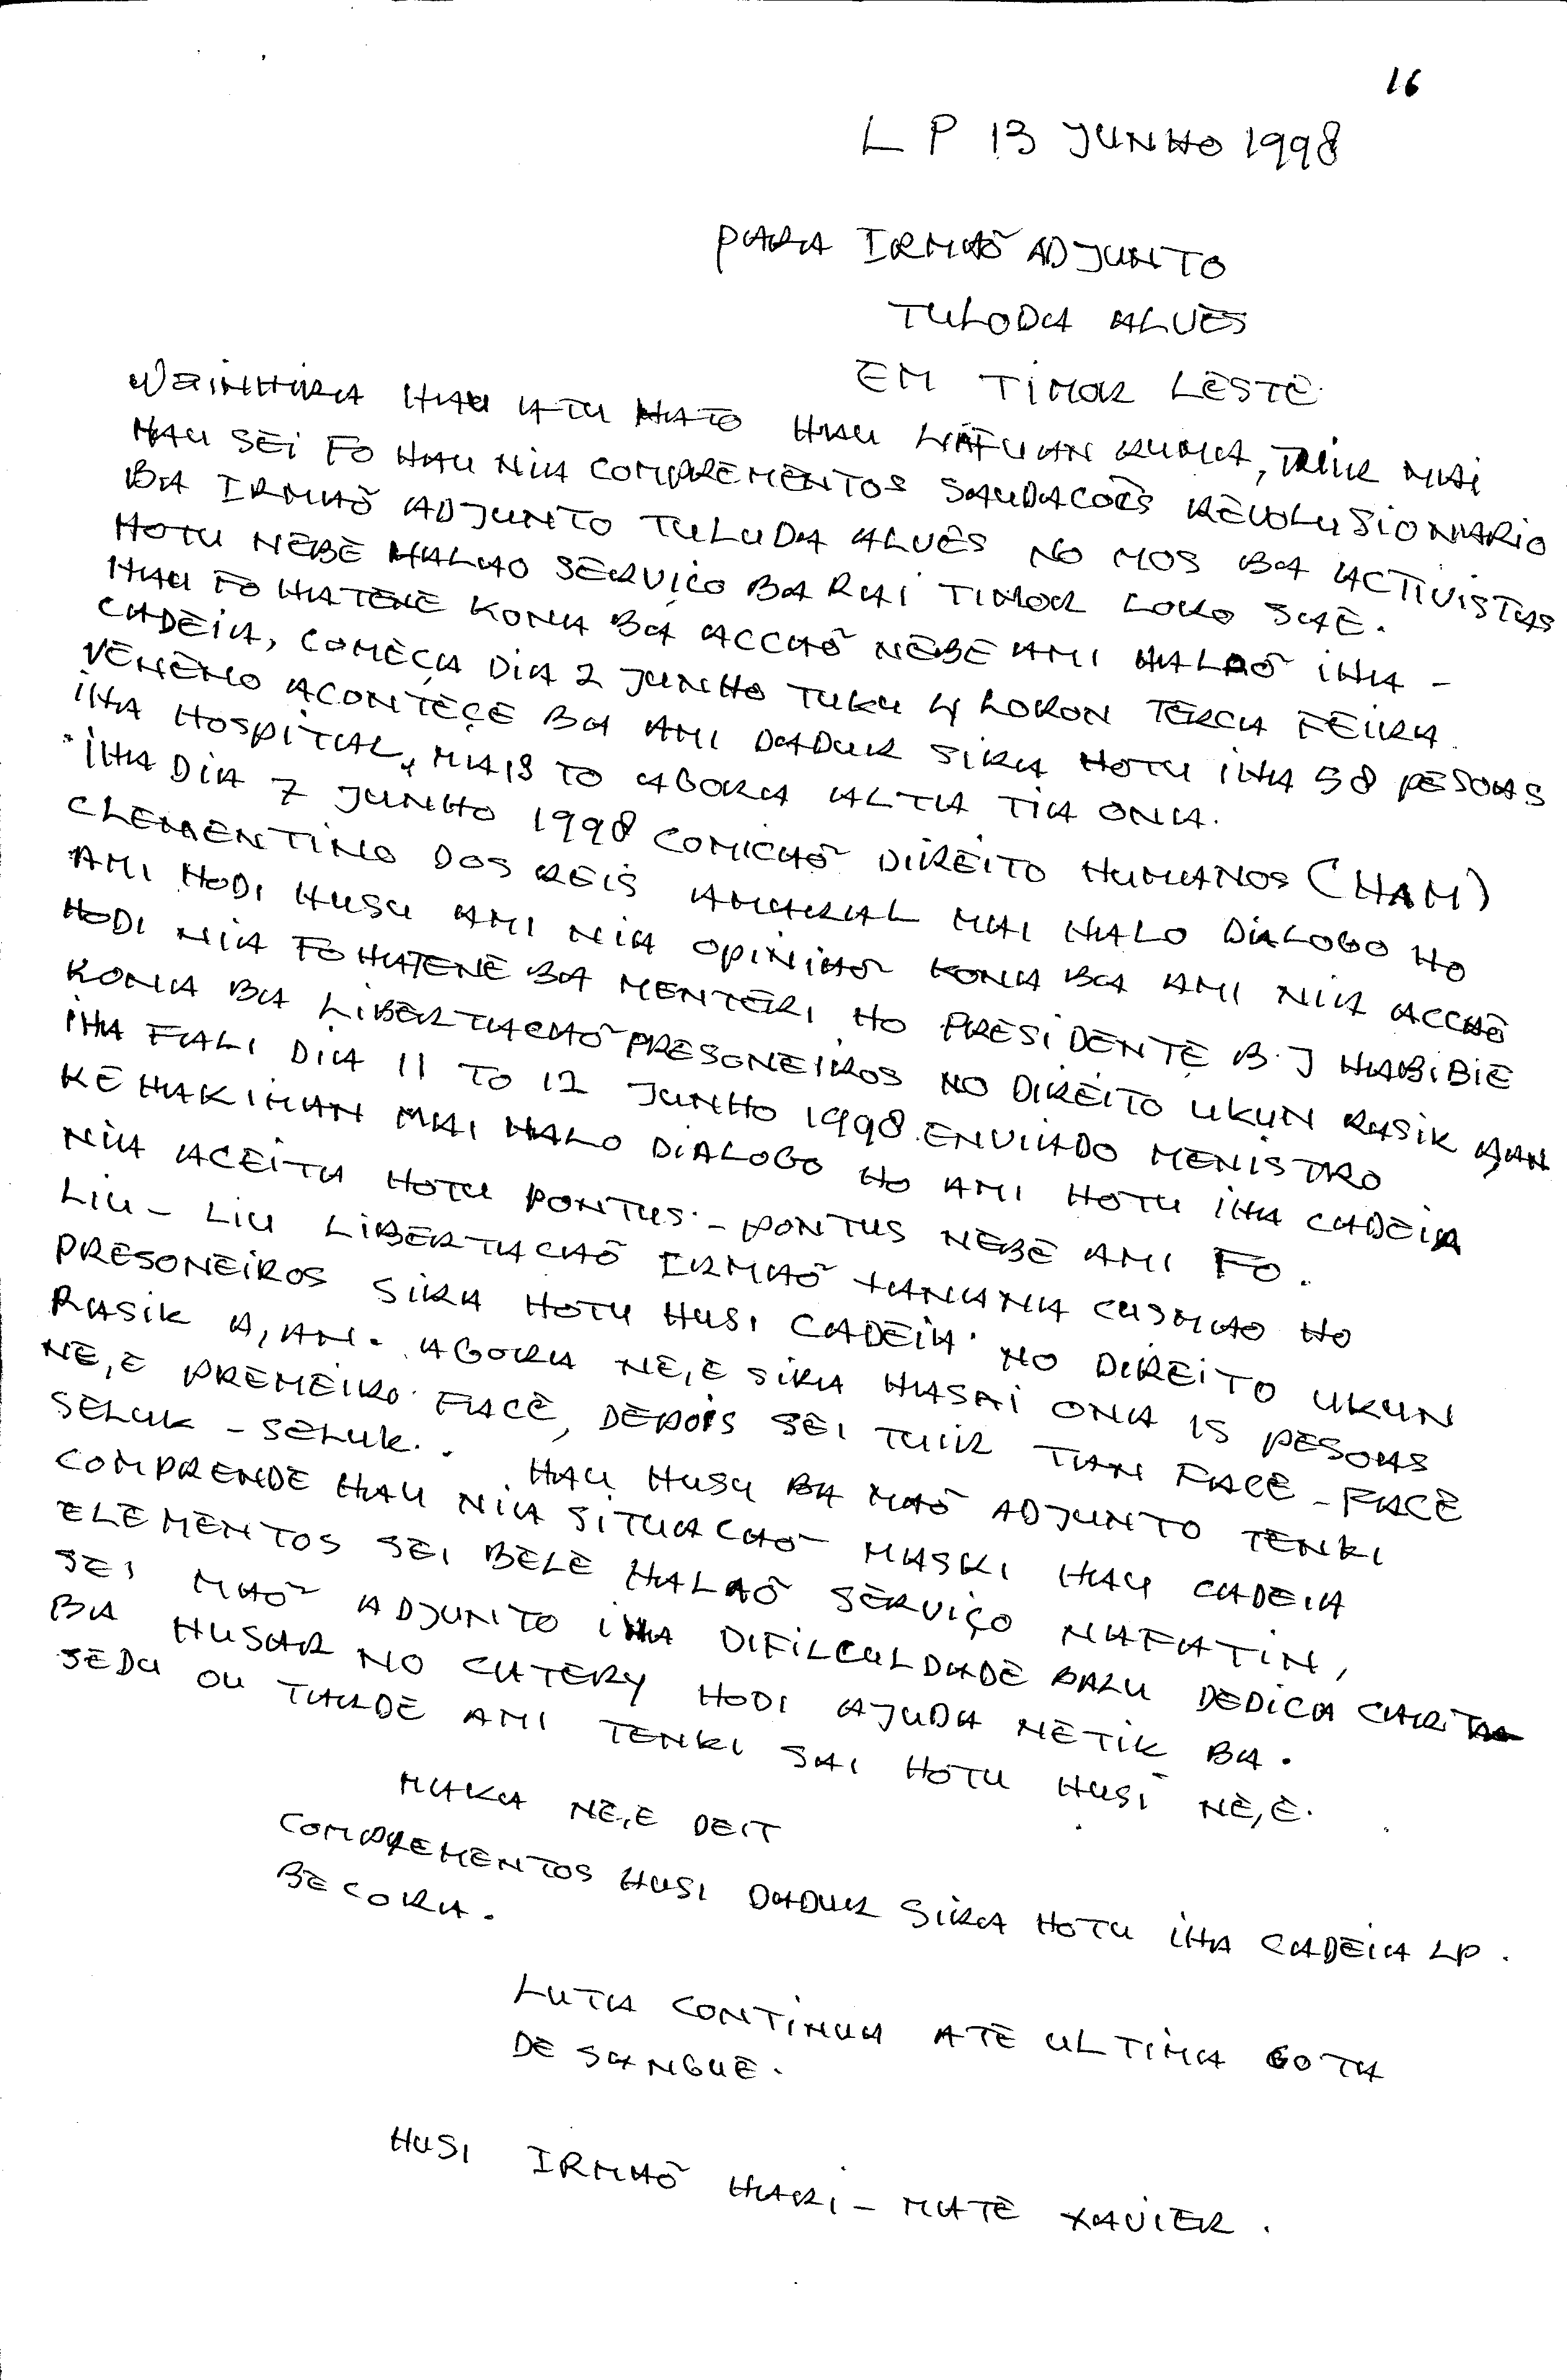 16
L P 13 JUNHO 1998
PARA IRMAÕ ADJUNTO
TULODA ALVES
EM TIMOR LESTE.
WAINHIRA HAU ATU HATO HAU LIAFUAN RUMA, TUIR MAI
HAU SEI FO HAU NIA COMPREMENTOS SAUDACOES REVOLUSIONARIO
BA IRMAÕ ADJUNTO TULUDA ALVES NO MOS BA ACTIVISTAS
HOTU NEBE HALAO SERVIÇO BA RAI TIMOR LORO SAE.
HAU FO HATENE KONA BA ACCAÕ NEBE AMI HALAÕ IHA -
CADEIA, COMEÇA DIA 2 JUNHO TUKU 4 LORON TERCA FEIRA.
VENENO ACONTEÇE BA AMI DADUR SIRA HOTU IHA 58 PESOAS
IHA HOSPITAL, MAIS TO AGORA ALTA TIA ONA.
IHA DIA 7 JUNHO 1998 COMICAÕ DIREITO HUMANOS (HAM)
CLEMENTINO DOS REIS AMARAL MAI HALO DIALOGO HO
AMI HODI HUSU AMI NIA OPINIAÕ KONA BA AMI NIA ACCAÕ
HODI NIA FO HATENE BA MENTERI HO PRESIDENTE B.J HABIBIE
KONA BA LIBERTACAÕ PRESONEIROS NO DIREITO UKUN RASIK A,AN
IHA FALI DIA 11 TO 12 JUNHO 1998. ENVIADO MENISTRO
KEHAKIMAN MAI HALO DIALOGO HO AMI HOTU IHA CADEIA
NIA ACEITA HOTU PONTUS - PONTUS NEBE AMI FO.
LIU - LIU LIBERTACAÕ IRMAÕ XANANA CUSMAO HO
PRESONEIROS SIRA HOTU HUSI CADEIA. NO DIREITO UKUN
RASIK A,AN. AGORA NE,E SIRA HASAI ONA 15 PESOAS
NE,E PREMEIRO FACE, DEPOIS SEI TUIR TAN FACE - FACE
SELUK - SELUK.. HAU HUSU BA MAÕ ADJUNTO TENKI
COMPRENDE HAU NIA SITUACAÕ MASKI HAU CADEIA
ELEMENTOS SEI BELE HALAÕ SERVIÇO NAFATIN,
SEI MAÕ ADJUNTO IHA DIFILCULDADE BALU DEDICA CARTA
BA HUSAR NO CATERY HODI AJUDA NETIK BA.
SEDU OU TARDE AMI TENKI SAI HOTU HUSI NE,E.
MAKA NE,E DEIT
COMPREMENTOS HUSI DADUR SIRA HOTU IHA CADEIA LP.
BECORA.
LUTA CONTINUA ATE ULTIMA GOTA
DE SANGUE.
HUSI IRMAÕ HARI - MATE XAVIER.